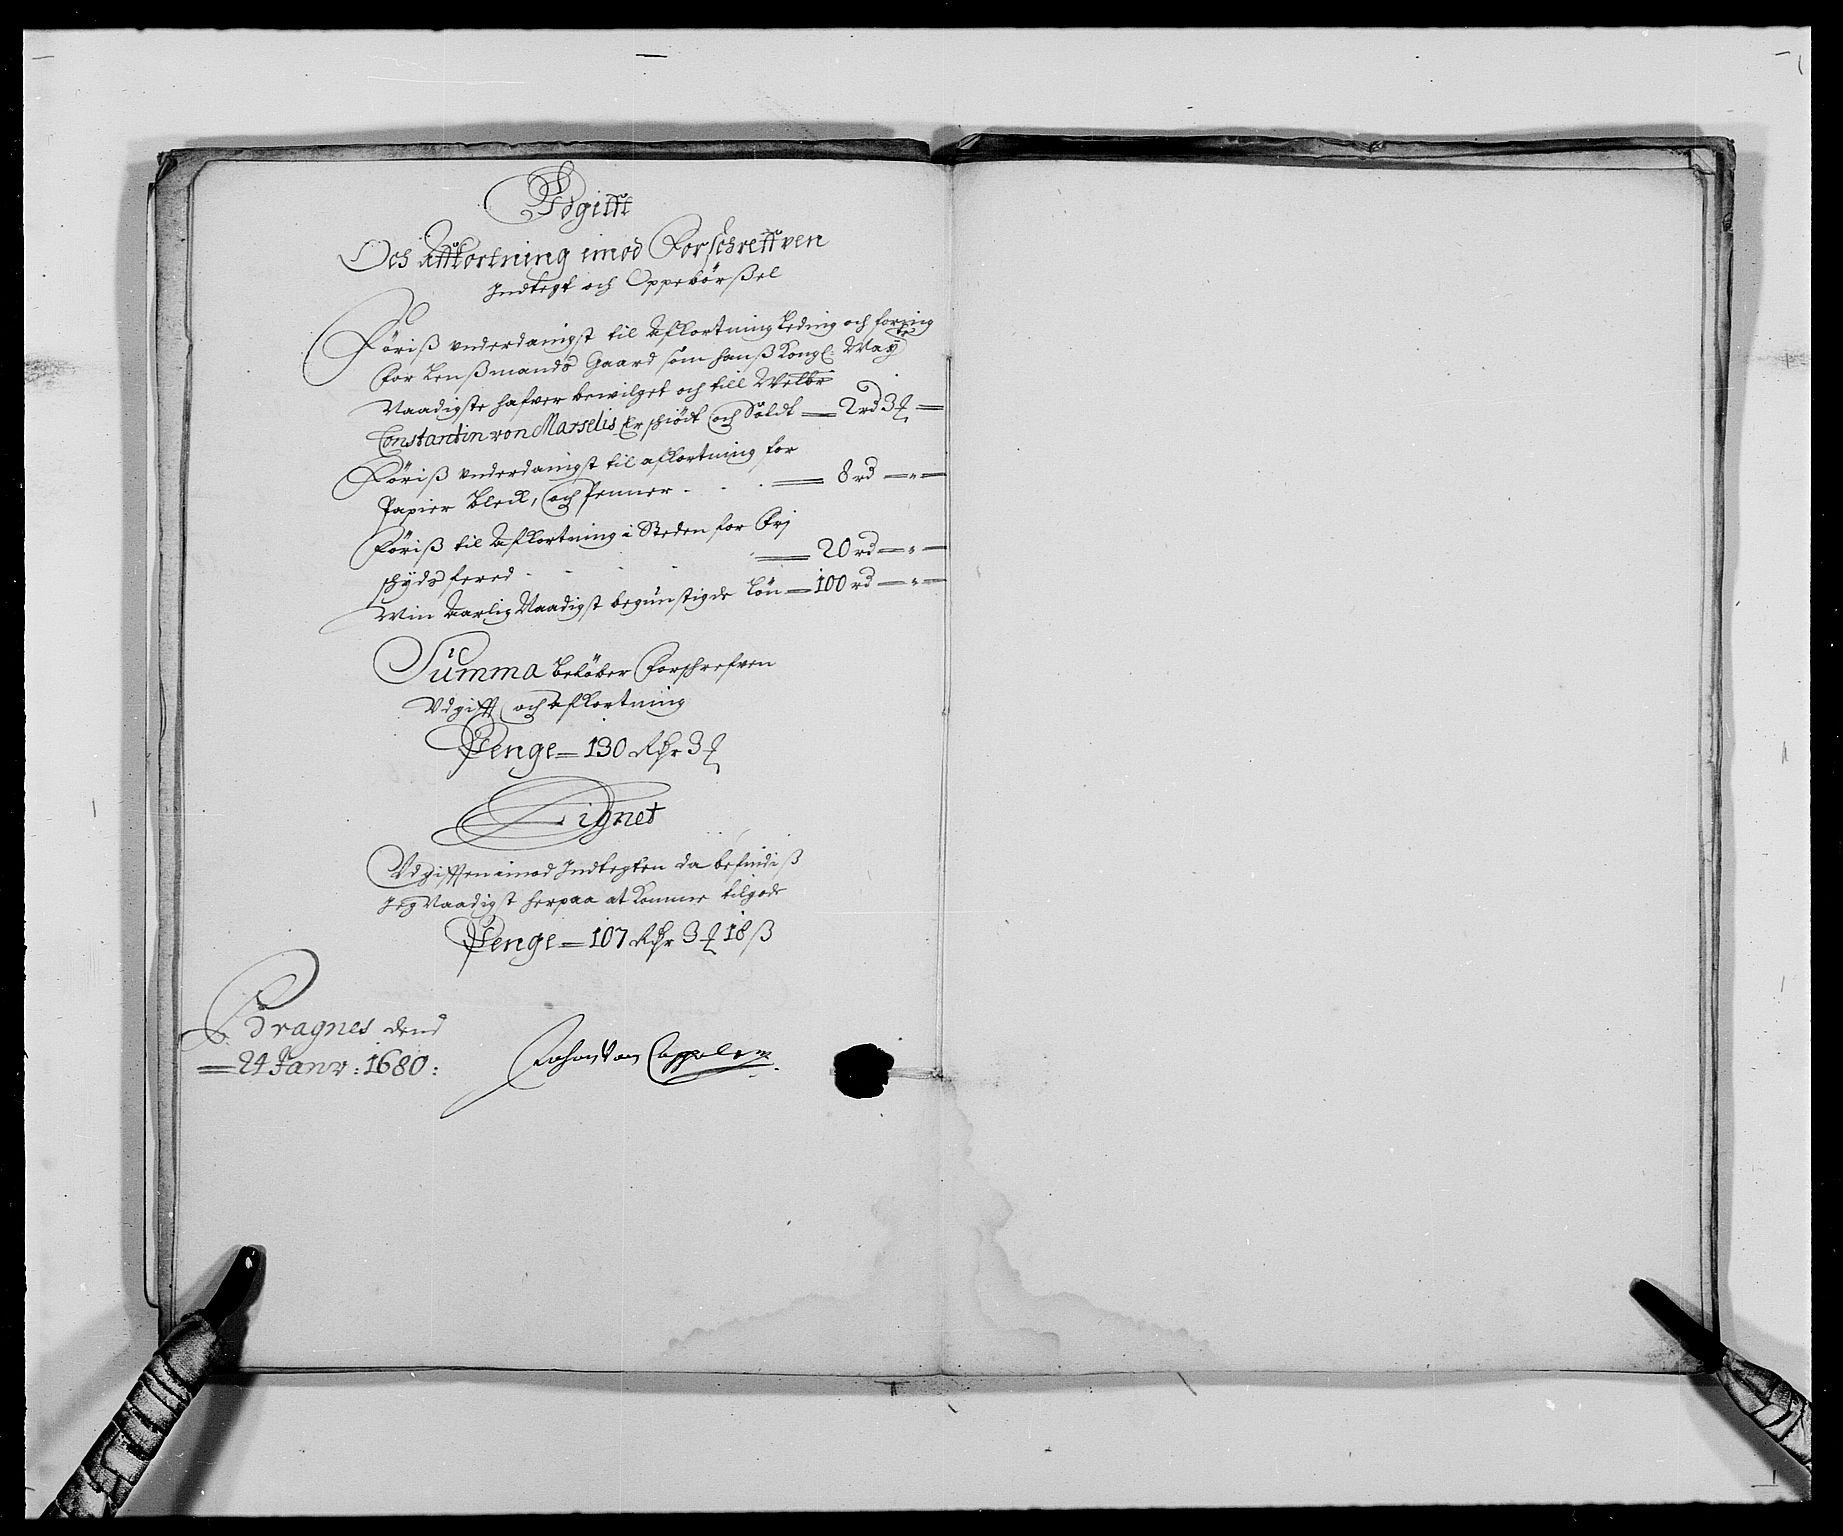 Udgifft
Och Affkortning imod Forschreffven
Indtegt och Oppebörßel
Föriß underdanigst til Afkortning Leding och foring
for Lenßmands Gaard som hanß Kongl: May:tz
Naadigste hafver bewilget och till Welbr
Constantin von Marselis Er schiödt och Soldt — 2 rd 3 ƺ —
Föriß underdanigst til afkortning for
Papier Bleck, och Penner - - - 8 rd — " —
Föriß til Afkortning i Steden for Fri
schyds fered - - - 20 rd — " —
Min Aarlig Naadigst begünstigde Lön — 100 rd — " —
Summa Belöber Forschrefven
Udgifft och afkortning
Penge — 130 Rdr 3 ƺ
Lignet
Udgifften imod Indtegten da befindiß
Jeg Naadigst herpaa at Komme tilgode
Penge — 107 Rdr 3 ƺ 18 ß
Bragnes dend
24 Janv: 1680:
Johan Von Cappelen